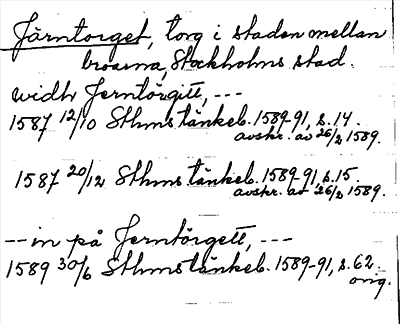 Järntorget, torg i staden mellan
broarna, Stockholms stad.
widh Jerntörgitt, ---
1587 12/10 Sthms tänkeb. 1589-91, s. 14.
avskr. av 26/2 1589.
1587 20/12 Sthms tänkeb. 1589-91, s. 15.
avskr. av 26/2 1589.
-- in på Jerntörgett, ---
1589 30/6 Sthms tänkeb. 1589-91, s. 62.
orig.